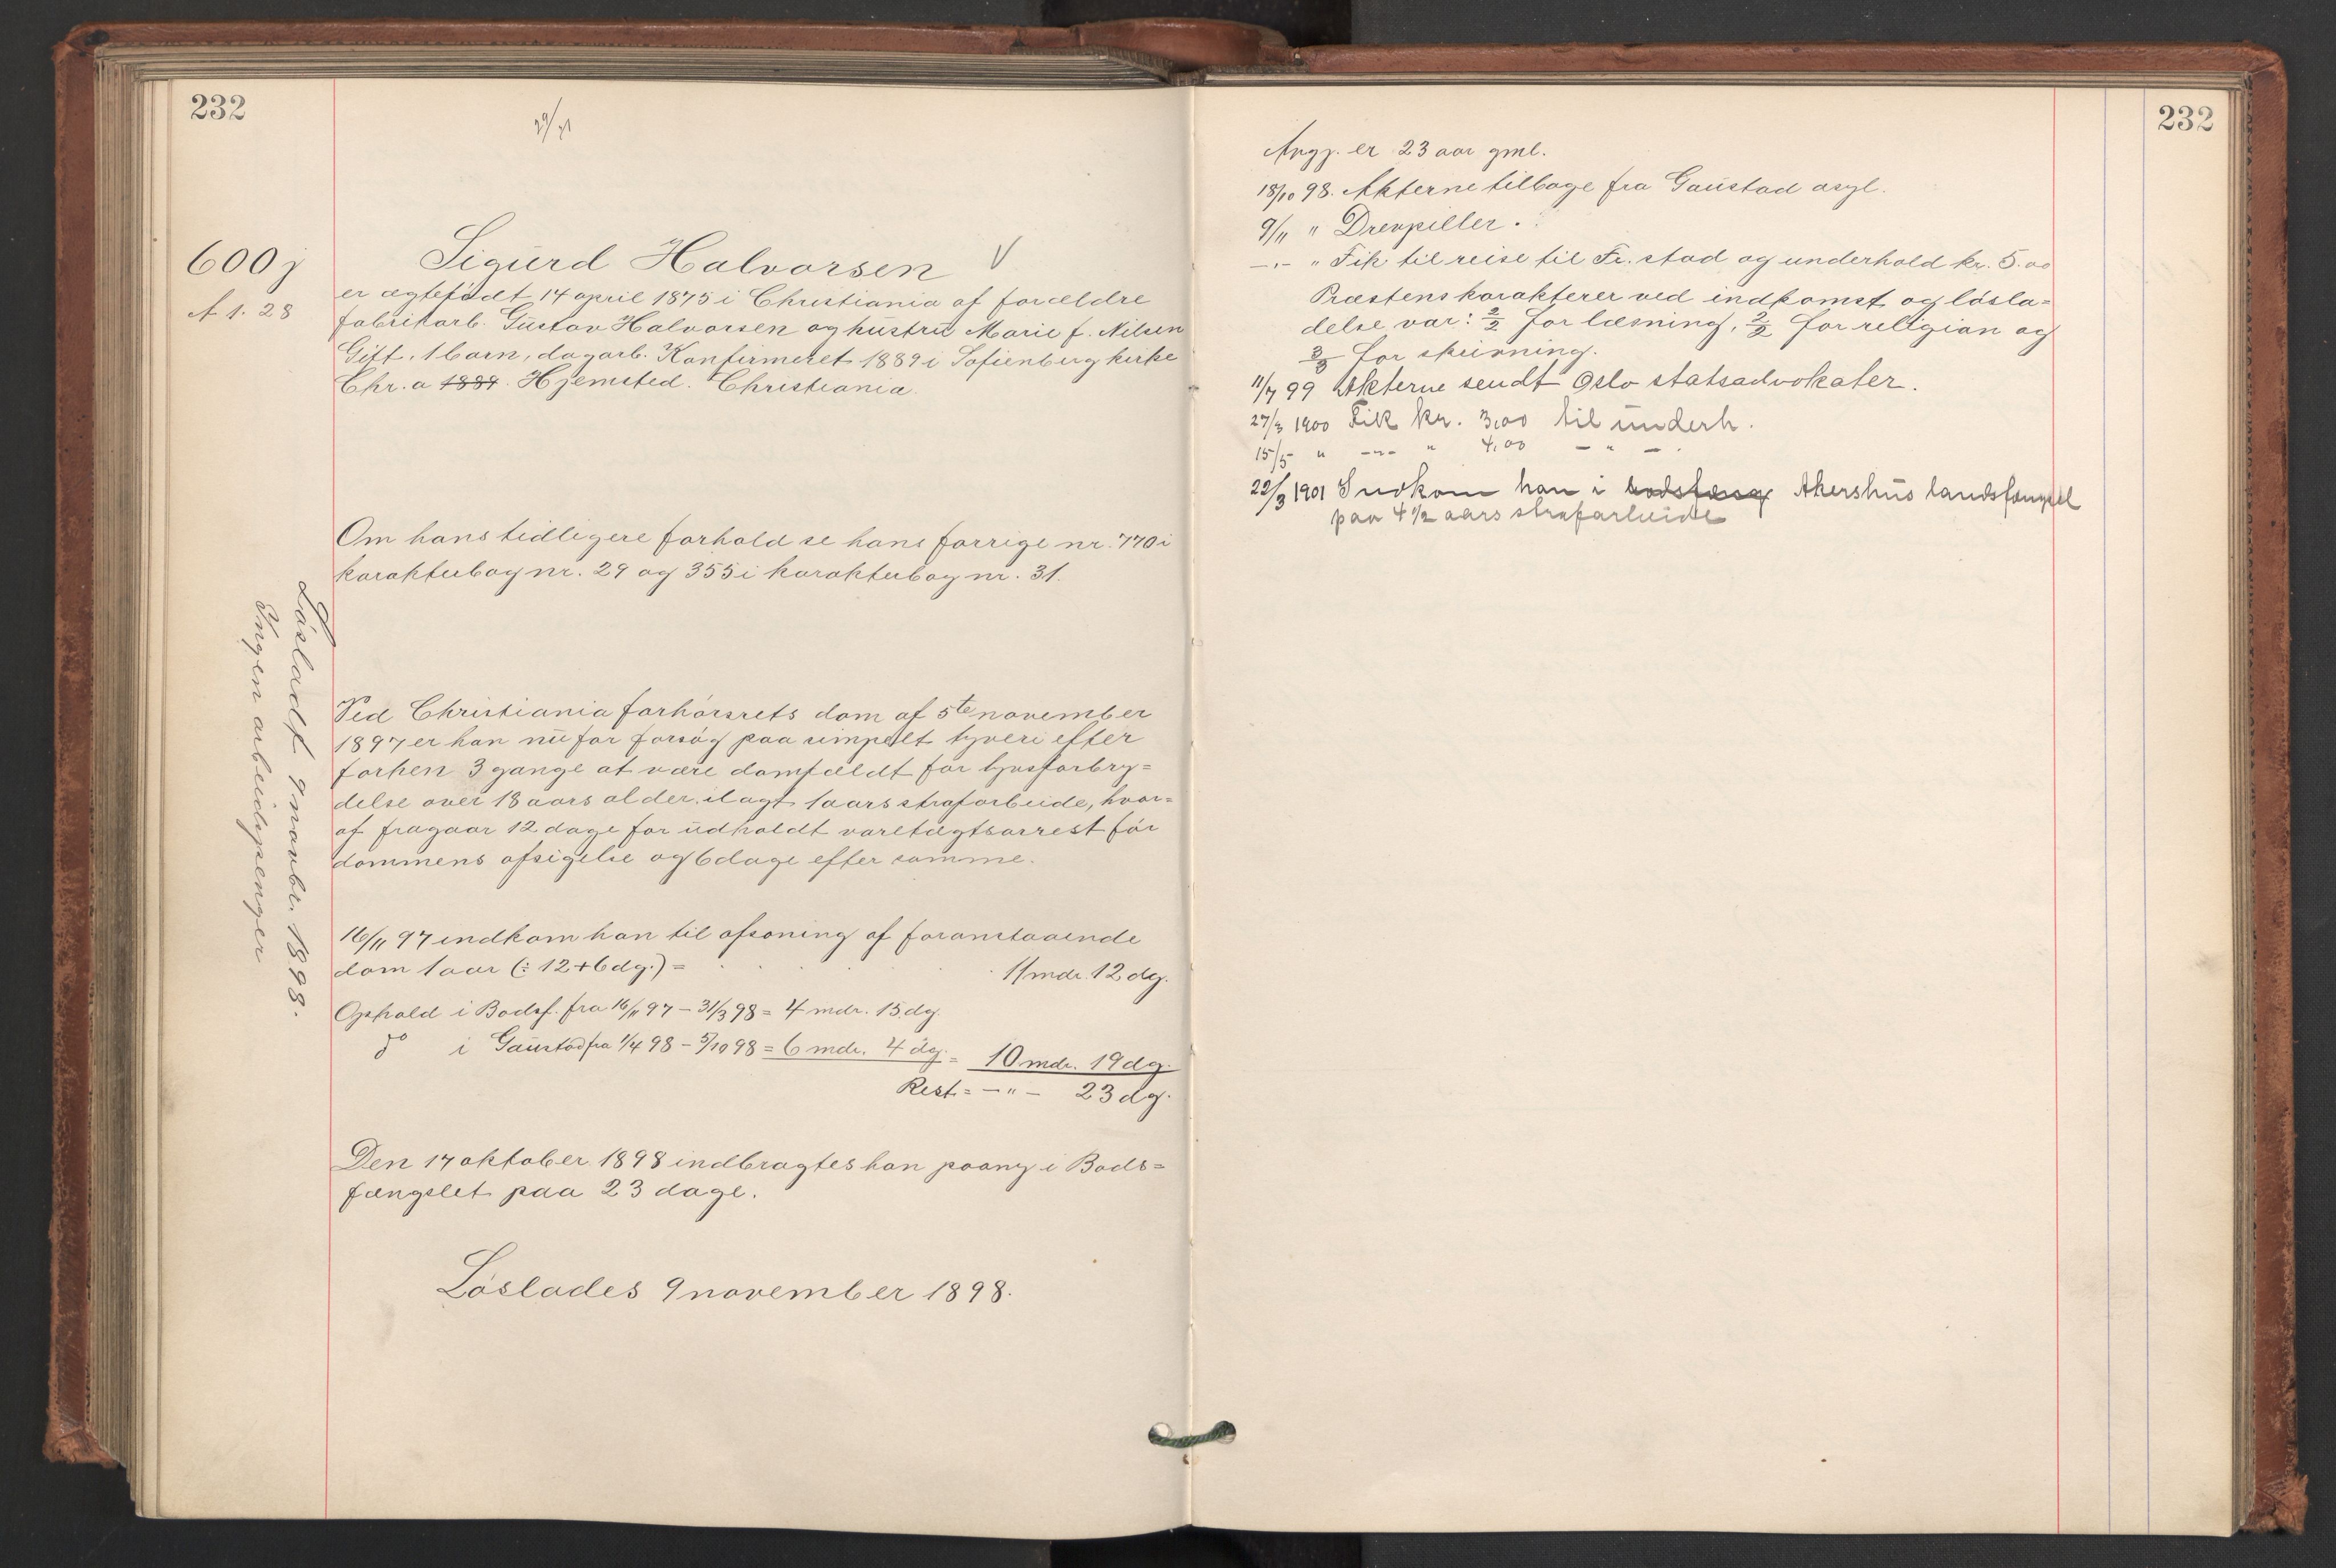 232
29/71
600 j
A 1. 28
Sigurd Halvorsen V
er ægtefødt 14 april 1875 i Christiania af forældre
fabrikarb. Gustav Halvorsen og hustru Marie f. Nilsen
Gift, 1 barn, dagarb. Konfirmeret 1889 i Sofienberg kirke
Chr.a 1889. Hjemsted. Christiania.
Om hans tidligere forhold se hans forrige nr. 770 i
karakterbog nr. 29 og 355 i karakterbog nr. 31.
Løsladt 9 novbr. 1898.
Ingen arbeidspenger
Ved Christiania forhørsrets dom af 5te november
1897 er han nu for forsøg paa simpelt tyveri efter
forhen 3 gange at være domfældt for tyvsforbry=
delse over 18 aars alder, ilagt 1 aars strafarbeide, hvor=
af fragaar 12 dage for udholdt varetægtsarrest før
dommens afsigelse og 6 dage efter samme.
16/11 97 indkom han til afsoning af foranstaaende
dom 1 aar (÷ 12+6 dg.) = 11 mdr. 12 dg.
Ophold i Bodsf. fra 16/11 97 – 31/3 98 = 4 mdr. 15 dg.
do i Gaustad fra 1/4 98 – 5/10 98 = 6 mdr. 4 dg. = 10 mdr. 19 dg.
Rest = – " – 23 dg.
Den 17 oktober 1898 indbragtes han paany i Bods=
fængslet paa 23 dage.
Løslades 9 november 1898.
232
Angj. er 23 aar gml.
18/10 98. Akterne tilbage fra Gaustad asyl.
9/11 " Drevpiller.
– . – " Fik til reise til Fr.stad og underhold kr. 5.00
Præstens karakterer ved indkomst og løsla=
delse var: 2/2 for læsning, 2/2 for religion og
3/3 for skrivning.
11/7 99 Akterne sendt Oslo statsadvokater.
27/3 1900 Fik kr. 3,00 til underh.
15/5 " – " – " 4,00 – " –.
22/3 1901 Indkom han i bodsfæng Akershus landsfængsel
paa 4 1/2 aars strafarbeide